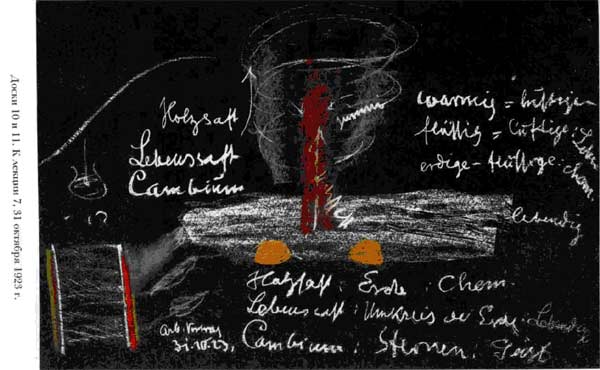 Доски 10 и 11. К лекции 7, 31 октября 1923 г.
Holzsaft
Lebenssaft
Cambium
warmig = luftigen
flüssig = luftige: Leben
erdige - flüssige: chem.
lebendig
Holzsaft: Erde: Chem.
Lebenssaft: Umkreis der Erde: Lebendig
Cambium: Sternen: Geist
Arb. Vortrag
31.X.23.